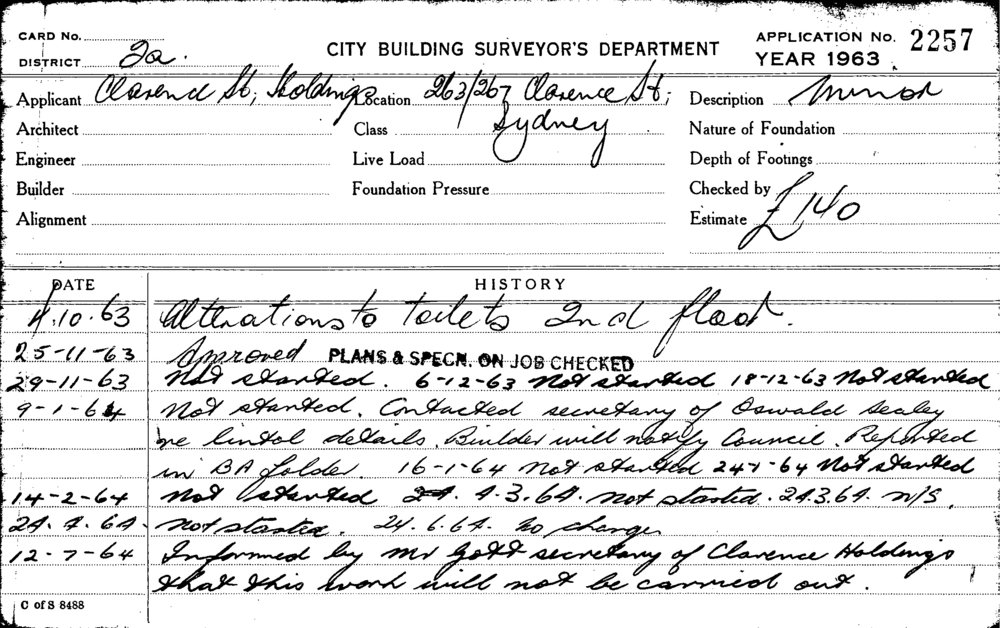 CARD No.
DISTRICT 2a.
CITY BUILDING SURVEYOR'S DEPARTMENT
APPLICATION No. 2257
YEAR 1963
Applicant Clarence St, Holdings Location 263/267 Clarence St; Description Minor
Architect Class Sydney Nature of Foundation
Engineer Live Load Depth of Footings
Builder Foundation Pressure Checked by
Alignment Estimate £140
DATE HISTORY
4.10.63 Alterations to toilets 2nd floor.
25-11-63 Approved PLANS & SPECN. ON JOB CHECKED
29-11-63 Not started. 6-12-63 Not started 18-12-63 Not started
9-1-64 Not started. Contacted secretary of Oswald Sealey
re lintol details. Builder will notify Council. Reported
in BA folder. 16-1-64 Not started 24-1-64 Not started
14-2-64 Not started 4.3.64. Not started. 24.3.64. N/S.
24.4.64. Not started. 24.6.64. No change
12-7-64 Informed by Mr Gott secretary of Clarence Holdings
that this work will not be carried out.
C of S 8488